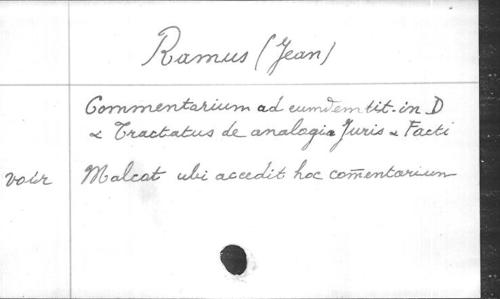 Ramus (Jean)
Commentarium ad eumdem tit. in D
& Tractatus de analogia Juris & Facti
voir Malcot ubi accedit hoc com̄entarium